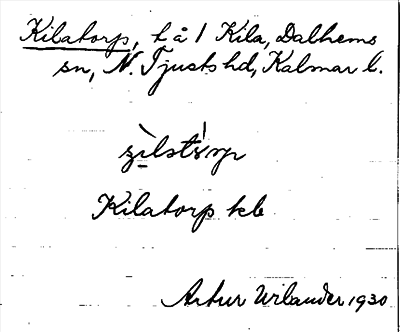 Kilatorp, t å 1 Kila, Dalhems
sn, N. Tjusts hd, Kalmar l.
Kilatorp kb
Artur Wilander 1930